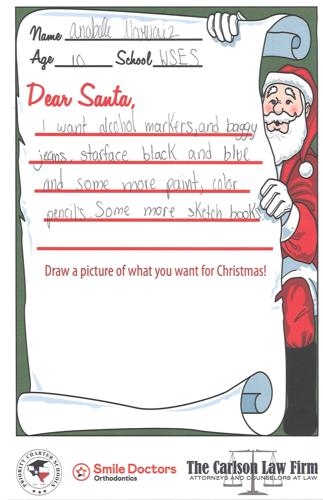 Name anabelle Narvaiz
Age 10 School WSES
Dear Santa,
I want alcohol markers, and baggy
jeans. starface black and blue
and some more paint, color
pencils. Some more sketch books
Draw a picture of what you want for Christmas!
PRIORITY CHARTER SCHOOLS
Smile Doctors
Orthodontics
The Carlson Law Firm
ATTORNEYS AND COUNSELORS AT LAW